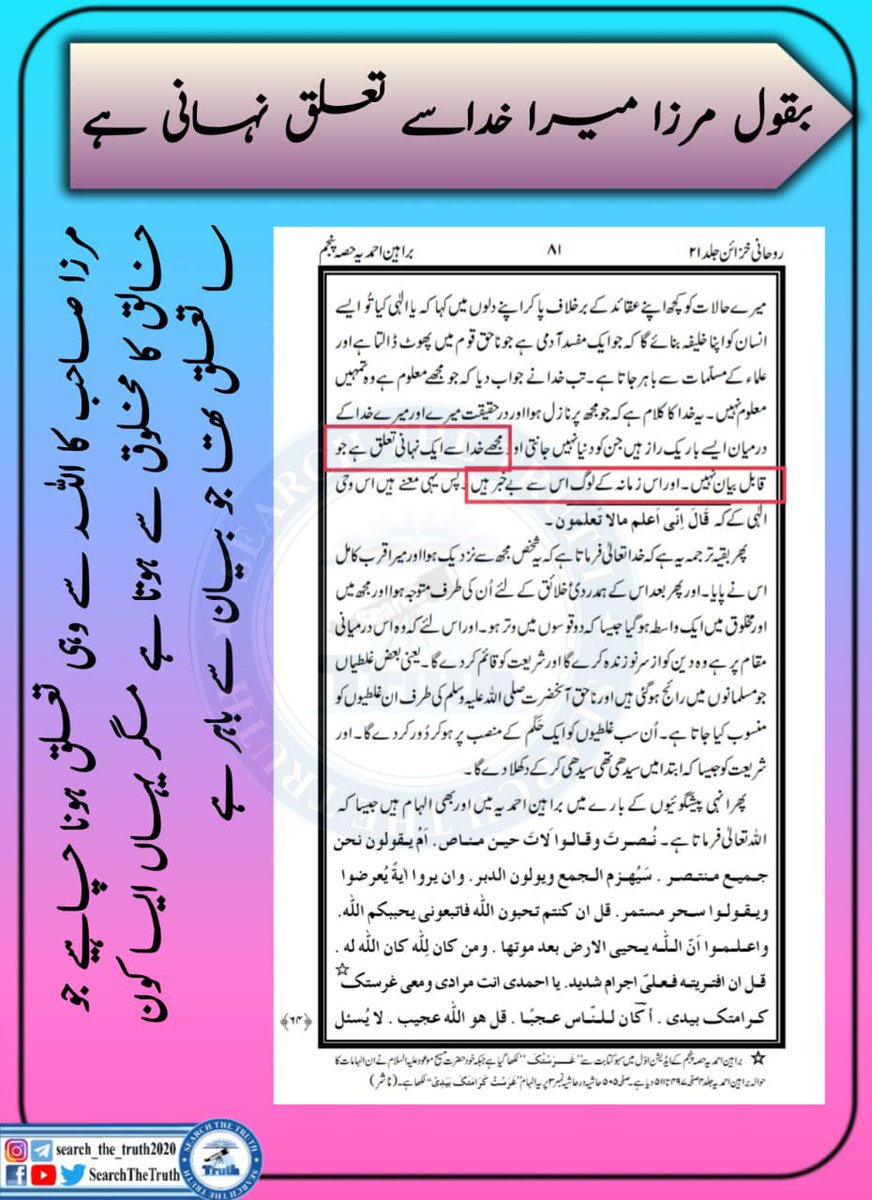 بقول مرزا میرا خدا سے تعلق نہانی ہے
مرزا صاحب کا اللہ سے وہی تعلق ہونا چاہیے جو
خالق کا مخلوق سے ہوتا ہے مگر یہاں ایسا کون
سا تعلق تھا جو بیان سے باہر ہے
روحانی خزائن جلد ۲۱
۸۱
براہین احمدیہ حصہ پنجم
میرے حالات کو کچھ اپنے عقائد کے برخلاف پا کر اپنے دلوں میں کہا کہ یا الٰہی کیا تُو ایسے
انسان کو اپنا خلیفہ بنائے گا کہ جو ایک مفسد آدمی ہے جو ناحق قوم میں پھوٹ ڈالتا ہے اور
علماء کے مسلمات سے باہر جاتا ہے۔ تب خدا نے جواب دیا کہ جو مجھے معلوم ہے وہ تمہیں
معلوم نہیں۔ یہ خدا کا کلام ہے کہ جو مجھ پر نازل ہوا اور درحقیقت میرے اور میرے خدا کے
درمیان ایسے باریک راز ہیں جن کو دنیا نہیں جانتی او مجھے خدا سے ایک نہانی تعلق ہے جو
قابل بیان نہیں۔ اور اس زمانہ کے لوگ اس سے بے خبر ہیں۔ پس یہی معنے ہیں اس وحی
الٰہی کے کہ قَالَ اِنِّی اَعلم مالا تَعلمون۔
پھر بقیہ ترجمہ یہ ہے کہ خدا تعالیٰ فرماتا ہے کہ یہ شخص مجھ سے نزدیک ہوا اور میرا قرب کامل
اس نے پایا۔ اور پھر بعد اس کے ہمدردیٔ خلائق کے لئے اُن کی طرف متوجہ ہوا اور مجھ میں
اور مخلوق میں ایک واسطہ ہو گیا جیسا کہ دو قوسوں میں وتر ہو۔ اور اس لئے کہ وہ اس درمیانی
مقام پر ہے وہ دین کو از سر نو زندہ کرے گا اور شریعت کو قائم کر دے گا۔ یعنی بعض غلطیاں
جو مسلمانوں میں رائج ہو گئی ہیں اور ناحق آنحضرت صلی اللہ علیہ وسلم کی طرف ان غلطیوں کو
منسوب کیا جاتا ہے۔ اُن سب غلطیوں کو ایک حَکَم کے منصب پر ہو کر دُور کر دے گا۔ اور
شریعت کو جیسا کہ ابتدا میں سیدھی تھی سیدھی کر کے دکھلا دے گا۔
پھر انہی پیشگوئیوں کے بارے میں براہین احمدیہ میں اور بھی الہام ہیں جیسا کہ
اللہ تعالیٰ فرماتا ہے۔ نُصرتَ وقالوا لَاتَ حین مناص. اَمْ یقولون نحن
جمیع منتصر. سَیُھزم الجمع ویولون الدبر. وان یروا اٰیةً یُعرضوا
ویقولوا سحر مستمر. قل ان کنتم تحبون اللّٰہ فاتبعونی یحببکم اللّٰہ.
واعلموا اَنَّ اللّٰہ یحیی الارض بعد موتھا. ومن کان لِلّٰہ کان اللّٰہ لہ.
قل ان افتریتہ فعلیّ اجرام شدید. یا احمدی انت مرادی ومعی غرستک☆
کرامتک بیدی. اَکَان للنّاس عجبًا. قل ھو اللّٰہ عجیب. لا یُسئل
﴿۶۴﴾
☆ براہین احمدیہ حصہ پنجم کے ایڈیشن اوّل میں سہو کتابت سے ”غَرَسْتُکَ“ لکھا گیا ہے جبکہ خود حضرت مسیح موعود علیہ السلام نے ان الہامات کا
حوالہ براہین احمدیہ جلد ۴ صفحہ ۴۹۷ تا ۵۱۱ دیا ہے۔ صفحہ ۵۰۵ حاشیہ در حاشیہ نمبر ۳ پر یہ الہام ”غَرَسْتُ کَرَامَتَکَ بِیَدِیْ“ لکھا ہے۔ (ناشر)
search_the_truth2020
SearchTheTruth
SEARCH THE TRUTH
Truth
SEARCH THE TRUTH